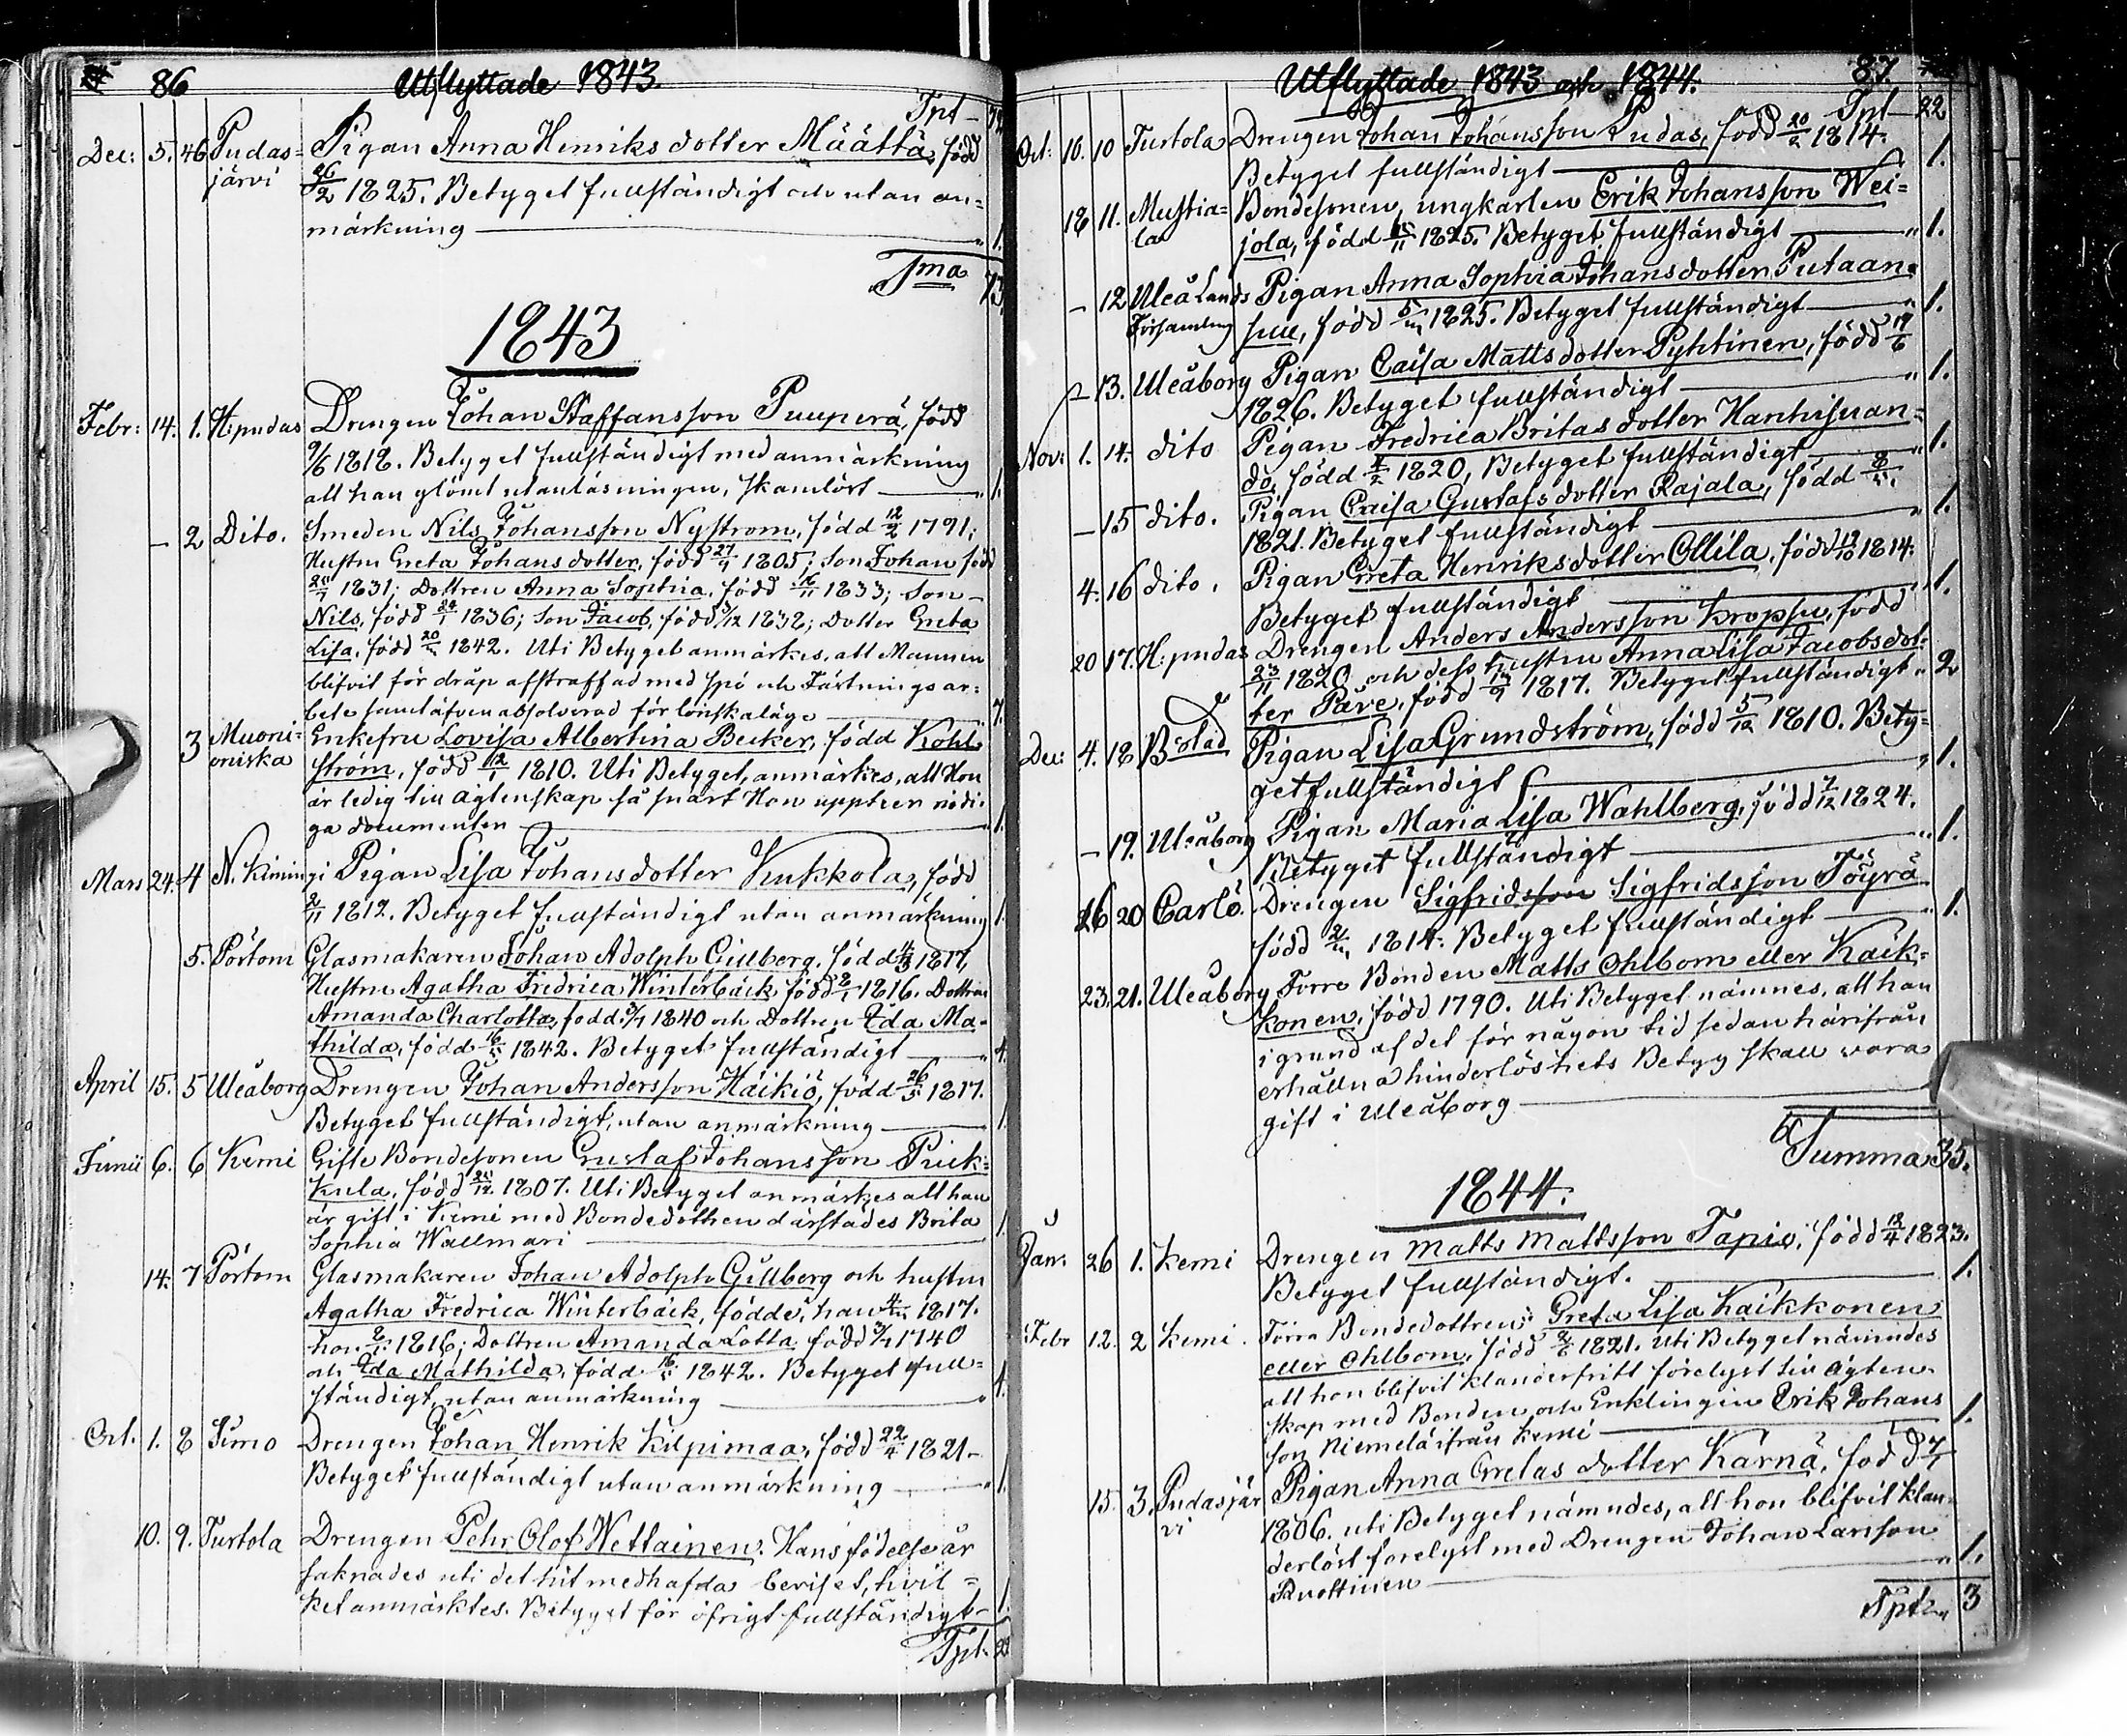 86 Utflyttade 1843.
Tpt
Dec: 5. 46 Pudas= Pigan Anna Henriksdotter Määttä, född
järvi 26/2 1825. Betyget fullständigt och utan an=
märkning 1.
Sma 73.
1843
Febr: 14. 1. H:pudas Drengen Johan Staffansson Puuperä, född
9/6 1818. Betyget fullständigt med anmärkning
att han glömt utanläsningen, skamlöst 1.
– 2 Dito. Smeden Nils Johansson Nystrom, född 12/2 1791;
Hustru Greta Johansdotter, född 27/4 1805; Son Johan född
1831; Dottren Anna Sophia, född 16/11 1833; Son
Nils, född 1836; Son Jacob, född 1/12 1838; Dotter Greta
Lisa, född 1842. Uti Betyget anmärkes, att Mannen
blifvit för dråp afstraffad med spö och Fästningsar=
bete samt äfven absolverad för lönskaläge 7.
3 Muoni= Enkefru Lovisa Albertina Becker, född Kohl=
oniska ström, född 12/1 1810. Uti Betyget, anmärkes, att Hon
är ledig till ägtenskap så snart Hon uppter nödi=
ga documenter 1.
Mars 24. 4 N. Kimingi Pigan Lisa Johansdotter Kukkola, född
2/11 1812. Betyget fullständigt utan anmärkning 1.
5. Pörtom Glasmakaren Johan Adolph Gillberg, född 1817,
Hustru Agatha Fredrica Winterbäck född 1816. Dottren
Amanda Charlotta, född 3/7 1840 och Dottren Ida Ma=
thilda, född 1842. Betyget fullständigt 4.
April 15. 5 Uleåborg Drengen Johan Andersson Häikiö, född 26/5 1817.
Betyget fullständigt, utan anmärkning 1.
Junii 6. 6 Kemi Gifte Bondesonen Gustaf Johansson Puik=
kula, född 1807. Uti Betyget anmärkes att han
är gift i Kemi med Bondedottren därstädes Brita
Sophia Wallmari 1.
14. 7 Pörtom Glasmakaren Johan Adolph Gillberg och hustru
Agatha Fredrica Winterbäck, födde, han 1817.
hon 1816; Dottren Amanda Lotta född 3/7 1740
och Ida Mathilda, född 1842. Betyget full=
ständigt, utan anmärkning 4.
Oct. 1. 8 Simo Drengen Johan Henrik Kilpimaa, född 22/4 1821.
Betyget fullständigt utan anmärkning 1.
10. 9. Turtola Drengen Pehr Olof Wettainen. Hans födelseår
saknades uti det hit medhafda beviset, hvil=
ket anmärktes. Betyget för öfrigt fullständigt 1.
Tpt. 22
Utflyttade 1843 och 1844. 87.
Tpt 22
Oct: 10. 10 Turtola Drengen Johan Johansson Pudas, född 20/2 1814.
Betyget fullständigt 1.
18 11. Mustia= Bondesonen, ungkarlen Erik Johansson Wei=
la jola, född 1825. Betyget fullständigt 1.
– 12 Uleå Lands Pigan Anna Sophia Johansdotter Putaan=
Församling suu, född 1825. Betyget fullständigt 1.
– 13. Uleåborg Pigan Caisa Mattsdotter Pyhtinen, född 19/6
1826. Betyget fullständigt 1.
Nov: 1. 14. dito Pigan Fredrica Britas dotter Hanhisuan=
do, född 1820, Betyget fullständigt 1.
– 15 dito. Pigan Caisa Gustafsdotter Rajala, född
1821. Betyget fullständigt 1.
4. 16 dito. Pigan Greta Henriksdotter Ollila, född 12/10 1814.
Betyget fullständigt 1.
20 17. H:pudas Drengen Anders Andersson Kropsu, född
23/11 1820 och dess hustru Anna Lisa Jacobsdot=
ter Päre, född 1817. Betyget fullständigt 2
Dec: 4. 18 B:stad Pigan Lisa Grundström, född 5/12 1810. Bety=
get fullständigt 1.
– 19. Uleåborg Pigan Maria Lisa Wahlberg, född 7/12 1824.
Betyget fullständigt 1.
16 20 Carlö. Drengen Sigfridsson Sigfridsson Töyrä
född 1814. Betyget fullständigt 1.
23. 21. Uleåborg Förre Bonden Matts Ohlbom eller Kaik=
konen, född 1790. Uti Betyget nämnes, att han
i grund af det för någon tid sedan härifrån
erhållna hinderlöshets Betyg skall vara
gift i Uleåborg
Summa 35.
1844.
Jan: 26 1. Kemi Drengen Matts Mattsson Tapio, född 12/4 1823.
Betyget fullständigt. 1.
Febr 12. 2 Kemi. Förra Bondedottren Greta Lisa Kaikkonen
eller Ohlbom, född 1821. Uti Betyget nämndes
att hon blifvit klanderfritt förelyst till ägten=
skap med Bonden och Enklingen Erik Johans
son Niemelä ifrån Kemi 1.
15. 3. Pudasjär Pigan Anna Gretas dotter Kärnä, född
vi 1806. uti Betyget nämndes, att hon blifvit klan=
derlöst förelyst med Drengen Johan Larsson
Puottinen 1.
Tpt 3